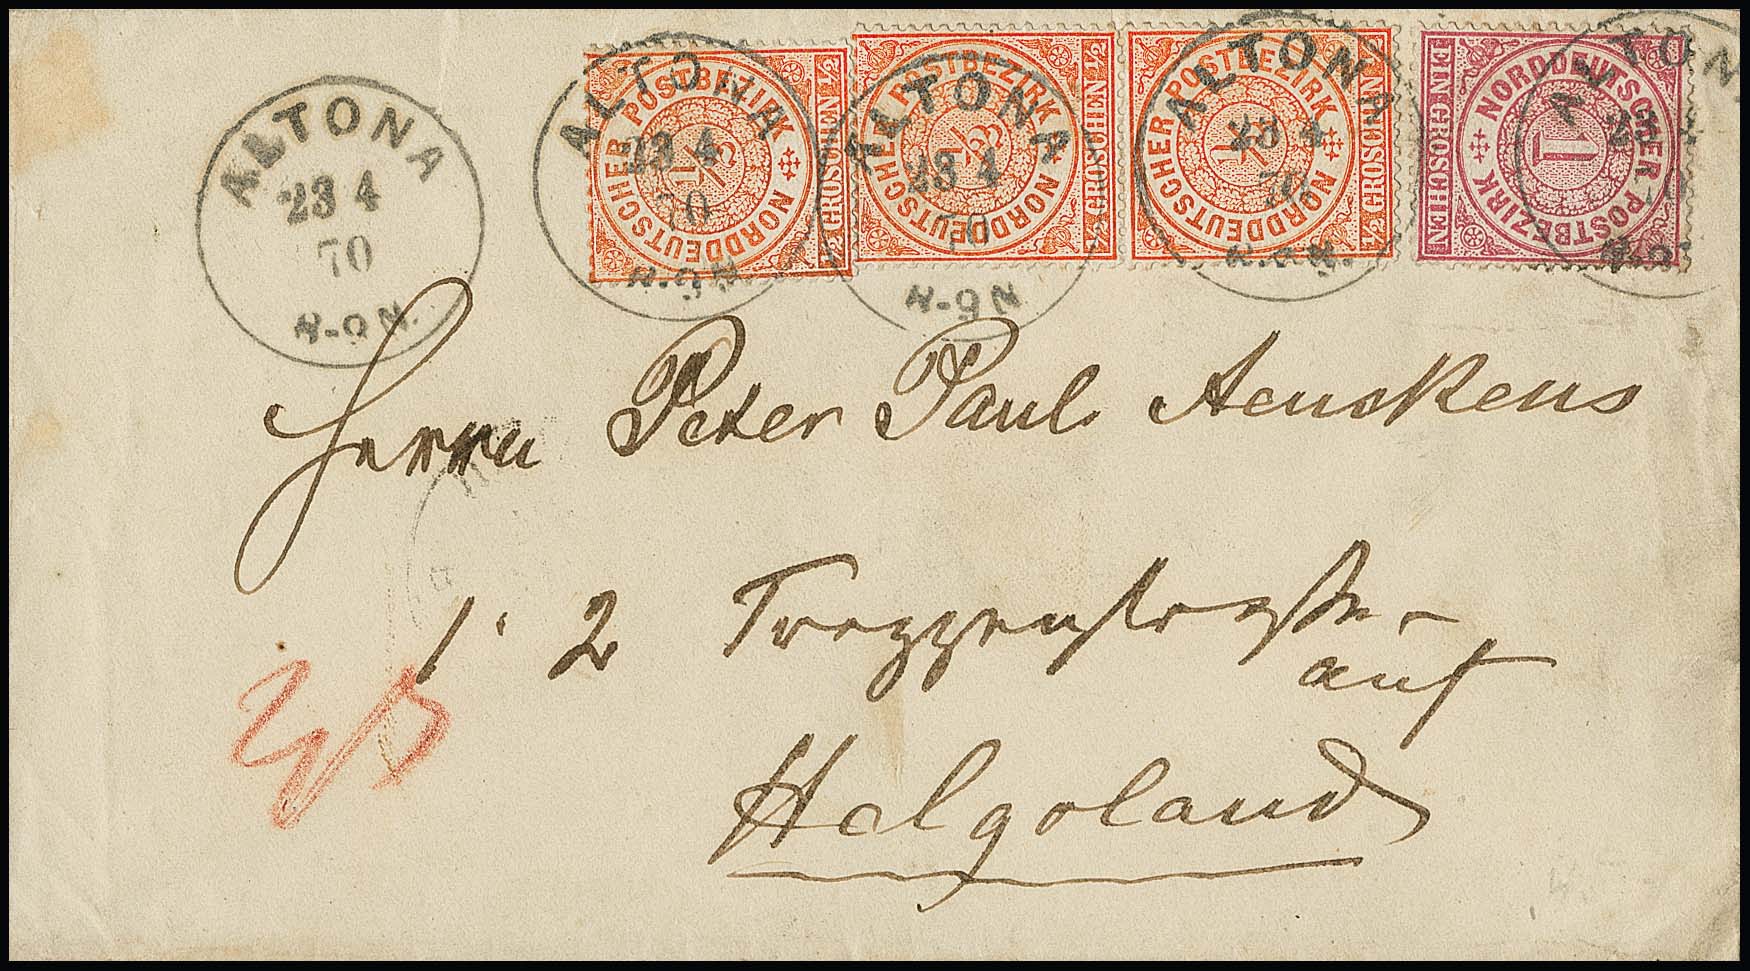 ALTONA
23 4
70
N-ON.
ALTONA
23 4
70
N-ON
NORDDEUTSCHER POSTBEZIRK
1/2
1/2 GROSCHEN 1/2
ALTONA
23 4
70
N-ON
NORDDEUTSCHER POSTBEZIRK
1/2
1/2 GROSCHEN 1/2
ALTONA
23 4
70
N-ON.
NORDDEUTSCHER POSTBEZIRK
1/2
1/2 GROSCHEN 1/2
ALTONA
NORDDEUTSCHER POSTBEZIRK
1
EIN GROSCHEN
Herrn Peter Paul Aeuckens
1 2 Treppenstraße
auf
Helgoland